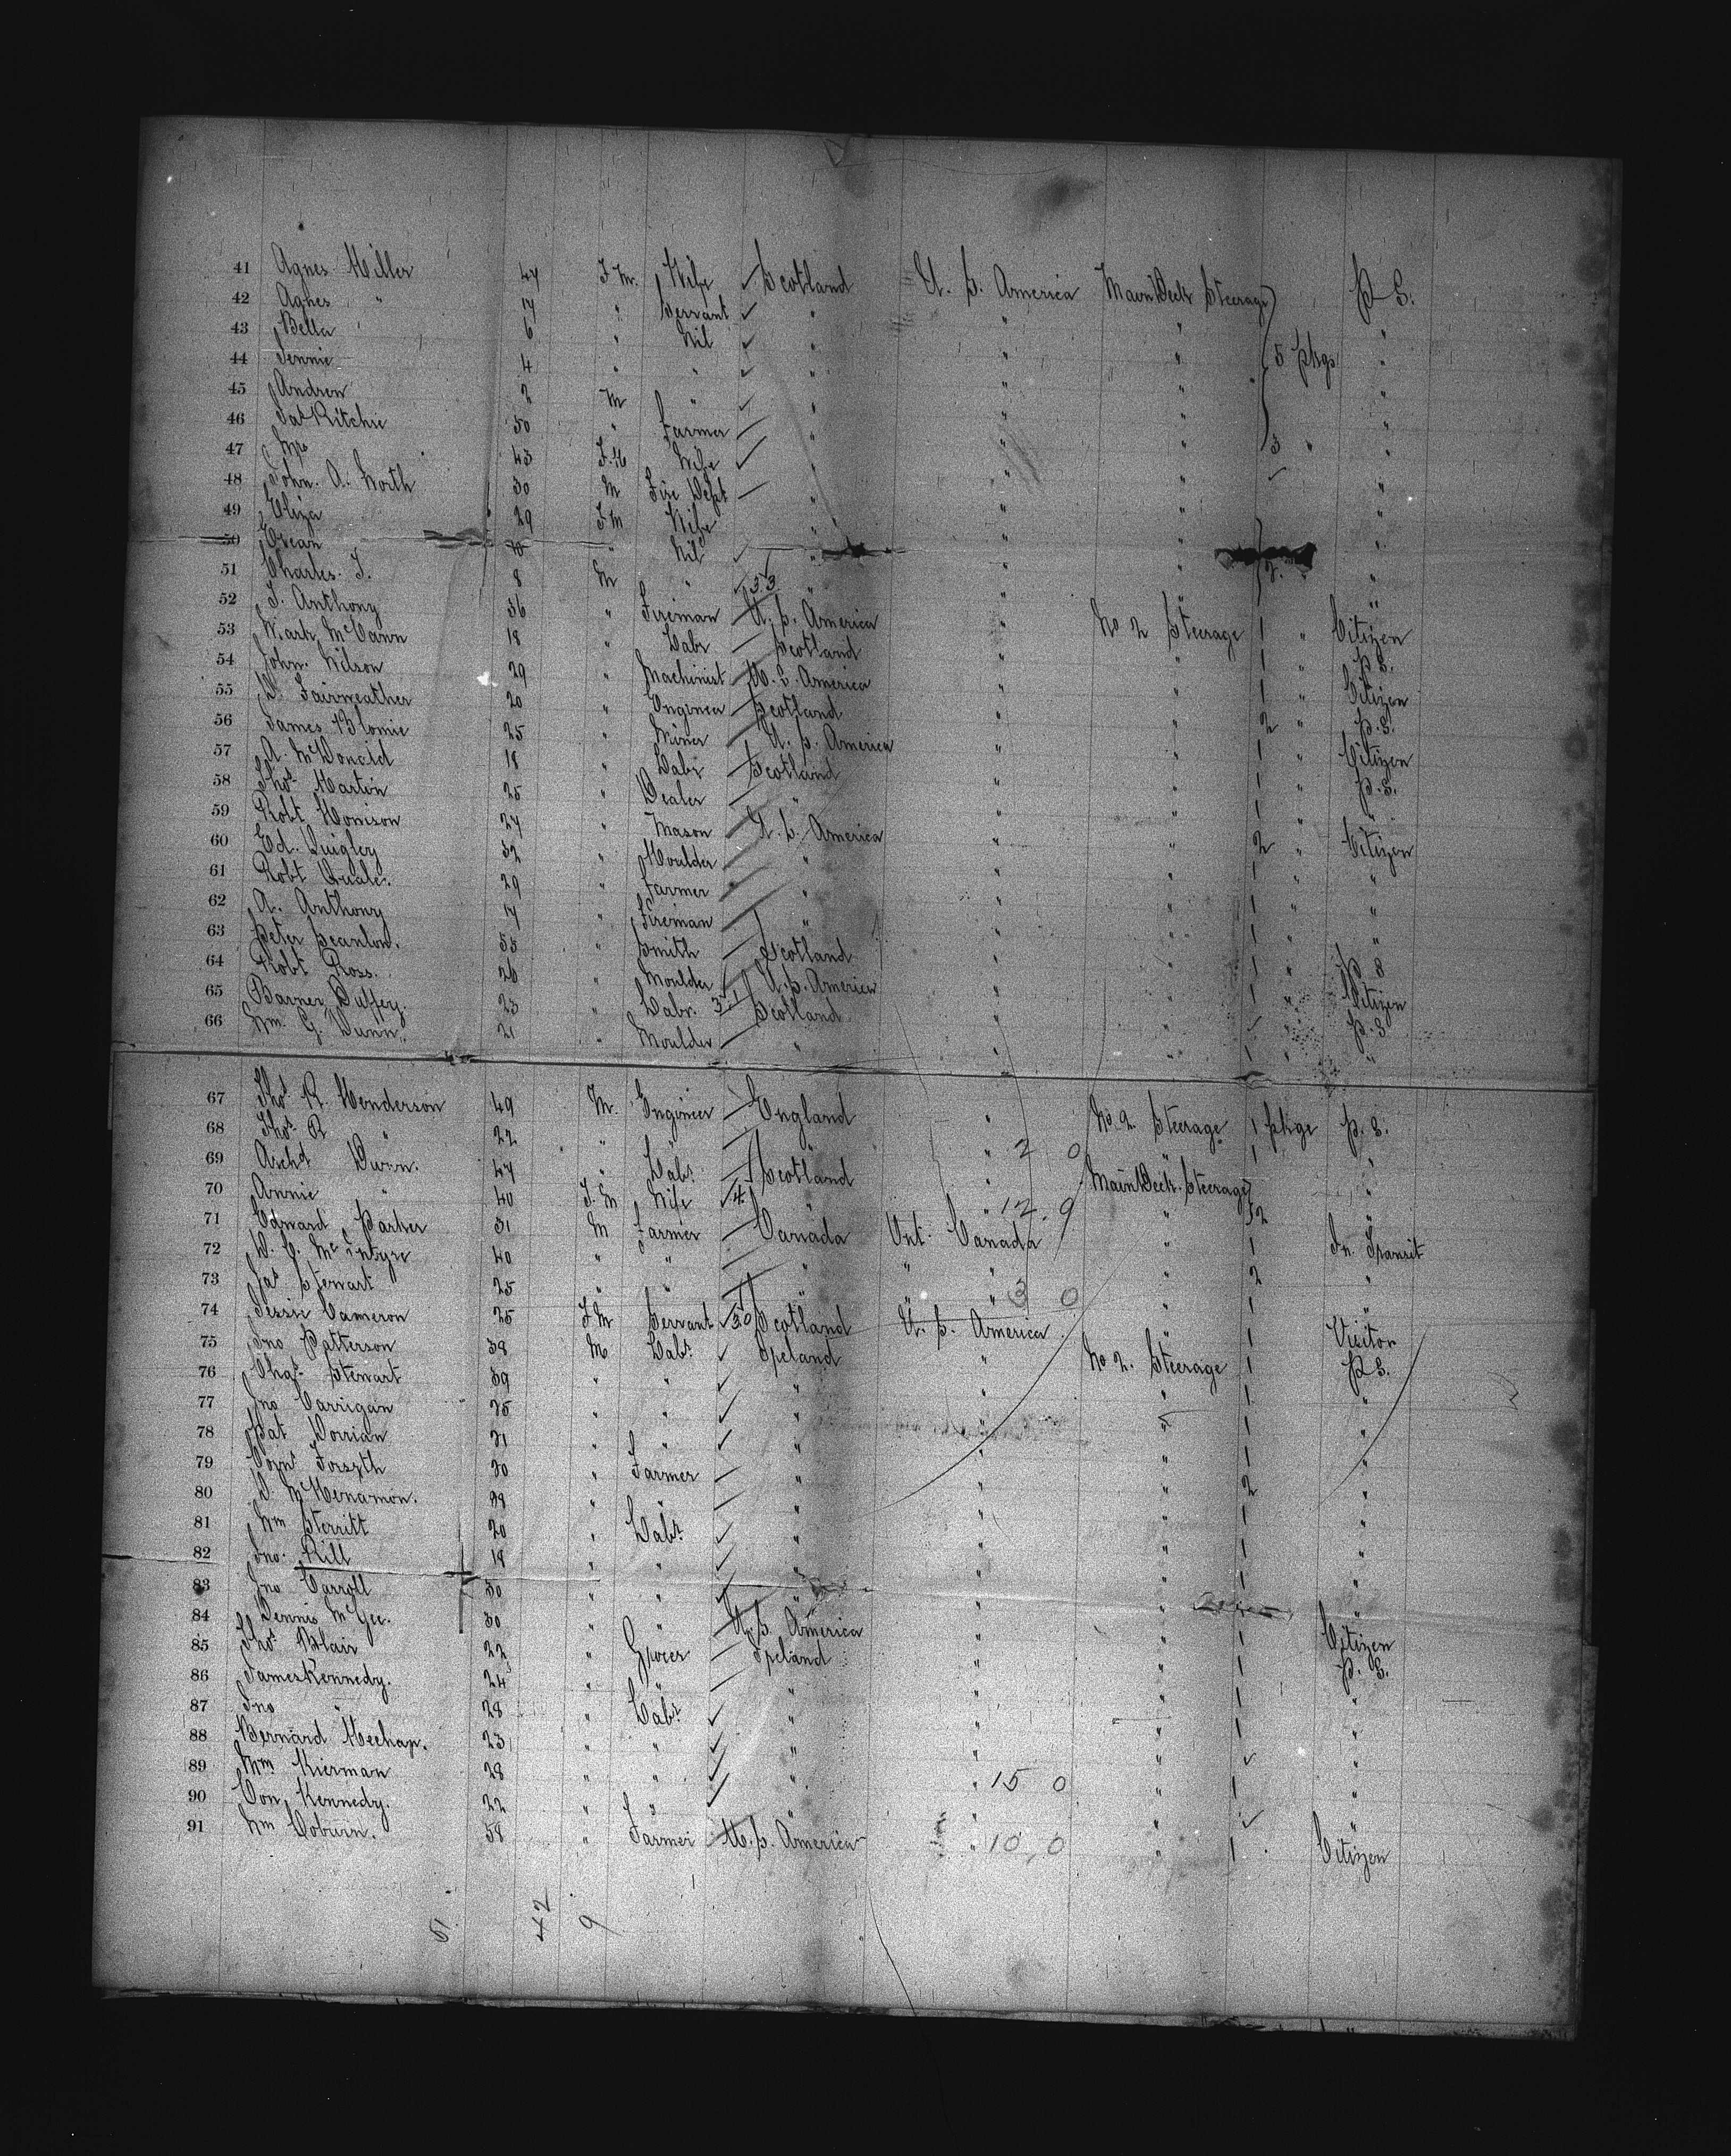 41 Agnes Miller 47 F M. Wife Scotland U. S. America Main Deck Steerage P S.
42 Agnes " 17 " Servant " " " "
43 Bella 6 " Nil " " " "
44 Jennie 4 " " " " " 5 pkgs "
45 Andrew 2 M " " " " "
46 Jas Ritchie 50 " Farmer " " " 3 " "
47 Mrs 43 F. M Wife " " " "
48 John. A. North 30 M Fire Dept " " " "
49 Eliza 29 F M Wife " " " "
50 10 " Nil " " "
51 Charles. J. 8 M " " " " 2. "
52 J. Anthony 36 " Fireman U. S. America " No 2 Steerage 1 " Citizen
53 Mark McCann 18 " Labr Scotland " " 1 " P S.
54 John. Wilson 29 " Machinist U. S. America " " 1 " Citizen
55 D. Fairweather 20 " Engineer Scotland " " 2 " P. S.
56 James Blomie 25 " Miner U. S. America " " 1 " Citizen
57 A. McDonald 18 " Labr Scotland " " 1 " P. S.
58 Thos Martin 25 " Dealer " " " 1 " "
59 Robt Monison 27 " Mason U. S. America " " 2 " Citizen
60 Ed. Quigley 32 " Moulder " " " 1 " "
61 Robt Quale. 29 " Farmer " " " 1 " "
62 A. Anthony 17 " Fireman " " " 1 " "
63 Peter Scanlon. 55 " Smith Scotland " " 1 " P S
64 Robt Ross. 26 " Moulder U. S. America " " 1 " Citizen
65 Barner Duffey. 23 " Labr. Scotland " " P. S
66 Wm. G. Dunn. 21 " Moulder " " " 1 " "
67 Thos R. Henderson 49 M. Engineer England " No. 2 Steerage 1 pkge P. S.
68 Thos. R " 22 " " " " 2 0 " 1 "
69 Archd Dunn. 47 " Labr. Scotland " Main Deck. Steerage "
70 Annie " 40 F. M Wife 4 " " 12. 9 " 2 "
71 Edward Parker 31 M Farmer Canada Ont. Canada " 1 In Transit
72 D. C. McIntyre 40 " " " " " " 2 "
73 Jas Stewart 25 " " " " " 3 0 " 1 "
74 Jessie Cameron 25 F M Servant 50 Scotland U. S. America " 1 Visitor
75 Jno Patterson 38 M Labr. Ireland " No 2. Steerage 1 P S.
76 Chas. Stewart 39 " " " " " 1 "
77 Jno Carrigan 25 " " " " " 1 "
78 Pat Dorrian 21 " " " " " 1 "
79 Forsyth 30 " Farmer " " " 2 "
80 D. McMenamon. 29 " " " " " 1 "
81 Wm Sterritt 20 " Labr. " " " 1 "
82 Jno. Rill 18 " " " " " 1 "
83 Jno Carroll 50 " " " " " 1 "
84 Dennis McGee. 30 " " U. S. America " " 1 Citizen
85 Thos Blair 22 " Grocer Ireland " " 1 P. S.
86 James Kennedy. 24 " " " " " 1 "
87 Jno " 28 " Labr. " " " 1 "
88 Bernard Meehan. 23 " " " " " "
89 Wm. Kierman 28 " " " " 15 0 " 1 "
90 Con. Kennedy. 22 " " " " " "
91 Wm Coburn. 58 " Farmer U. S. America " 10, 0 " 1 Citizen
51. 42 9